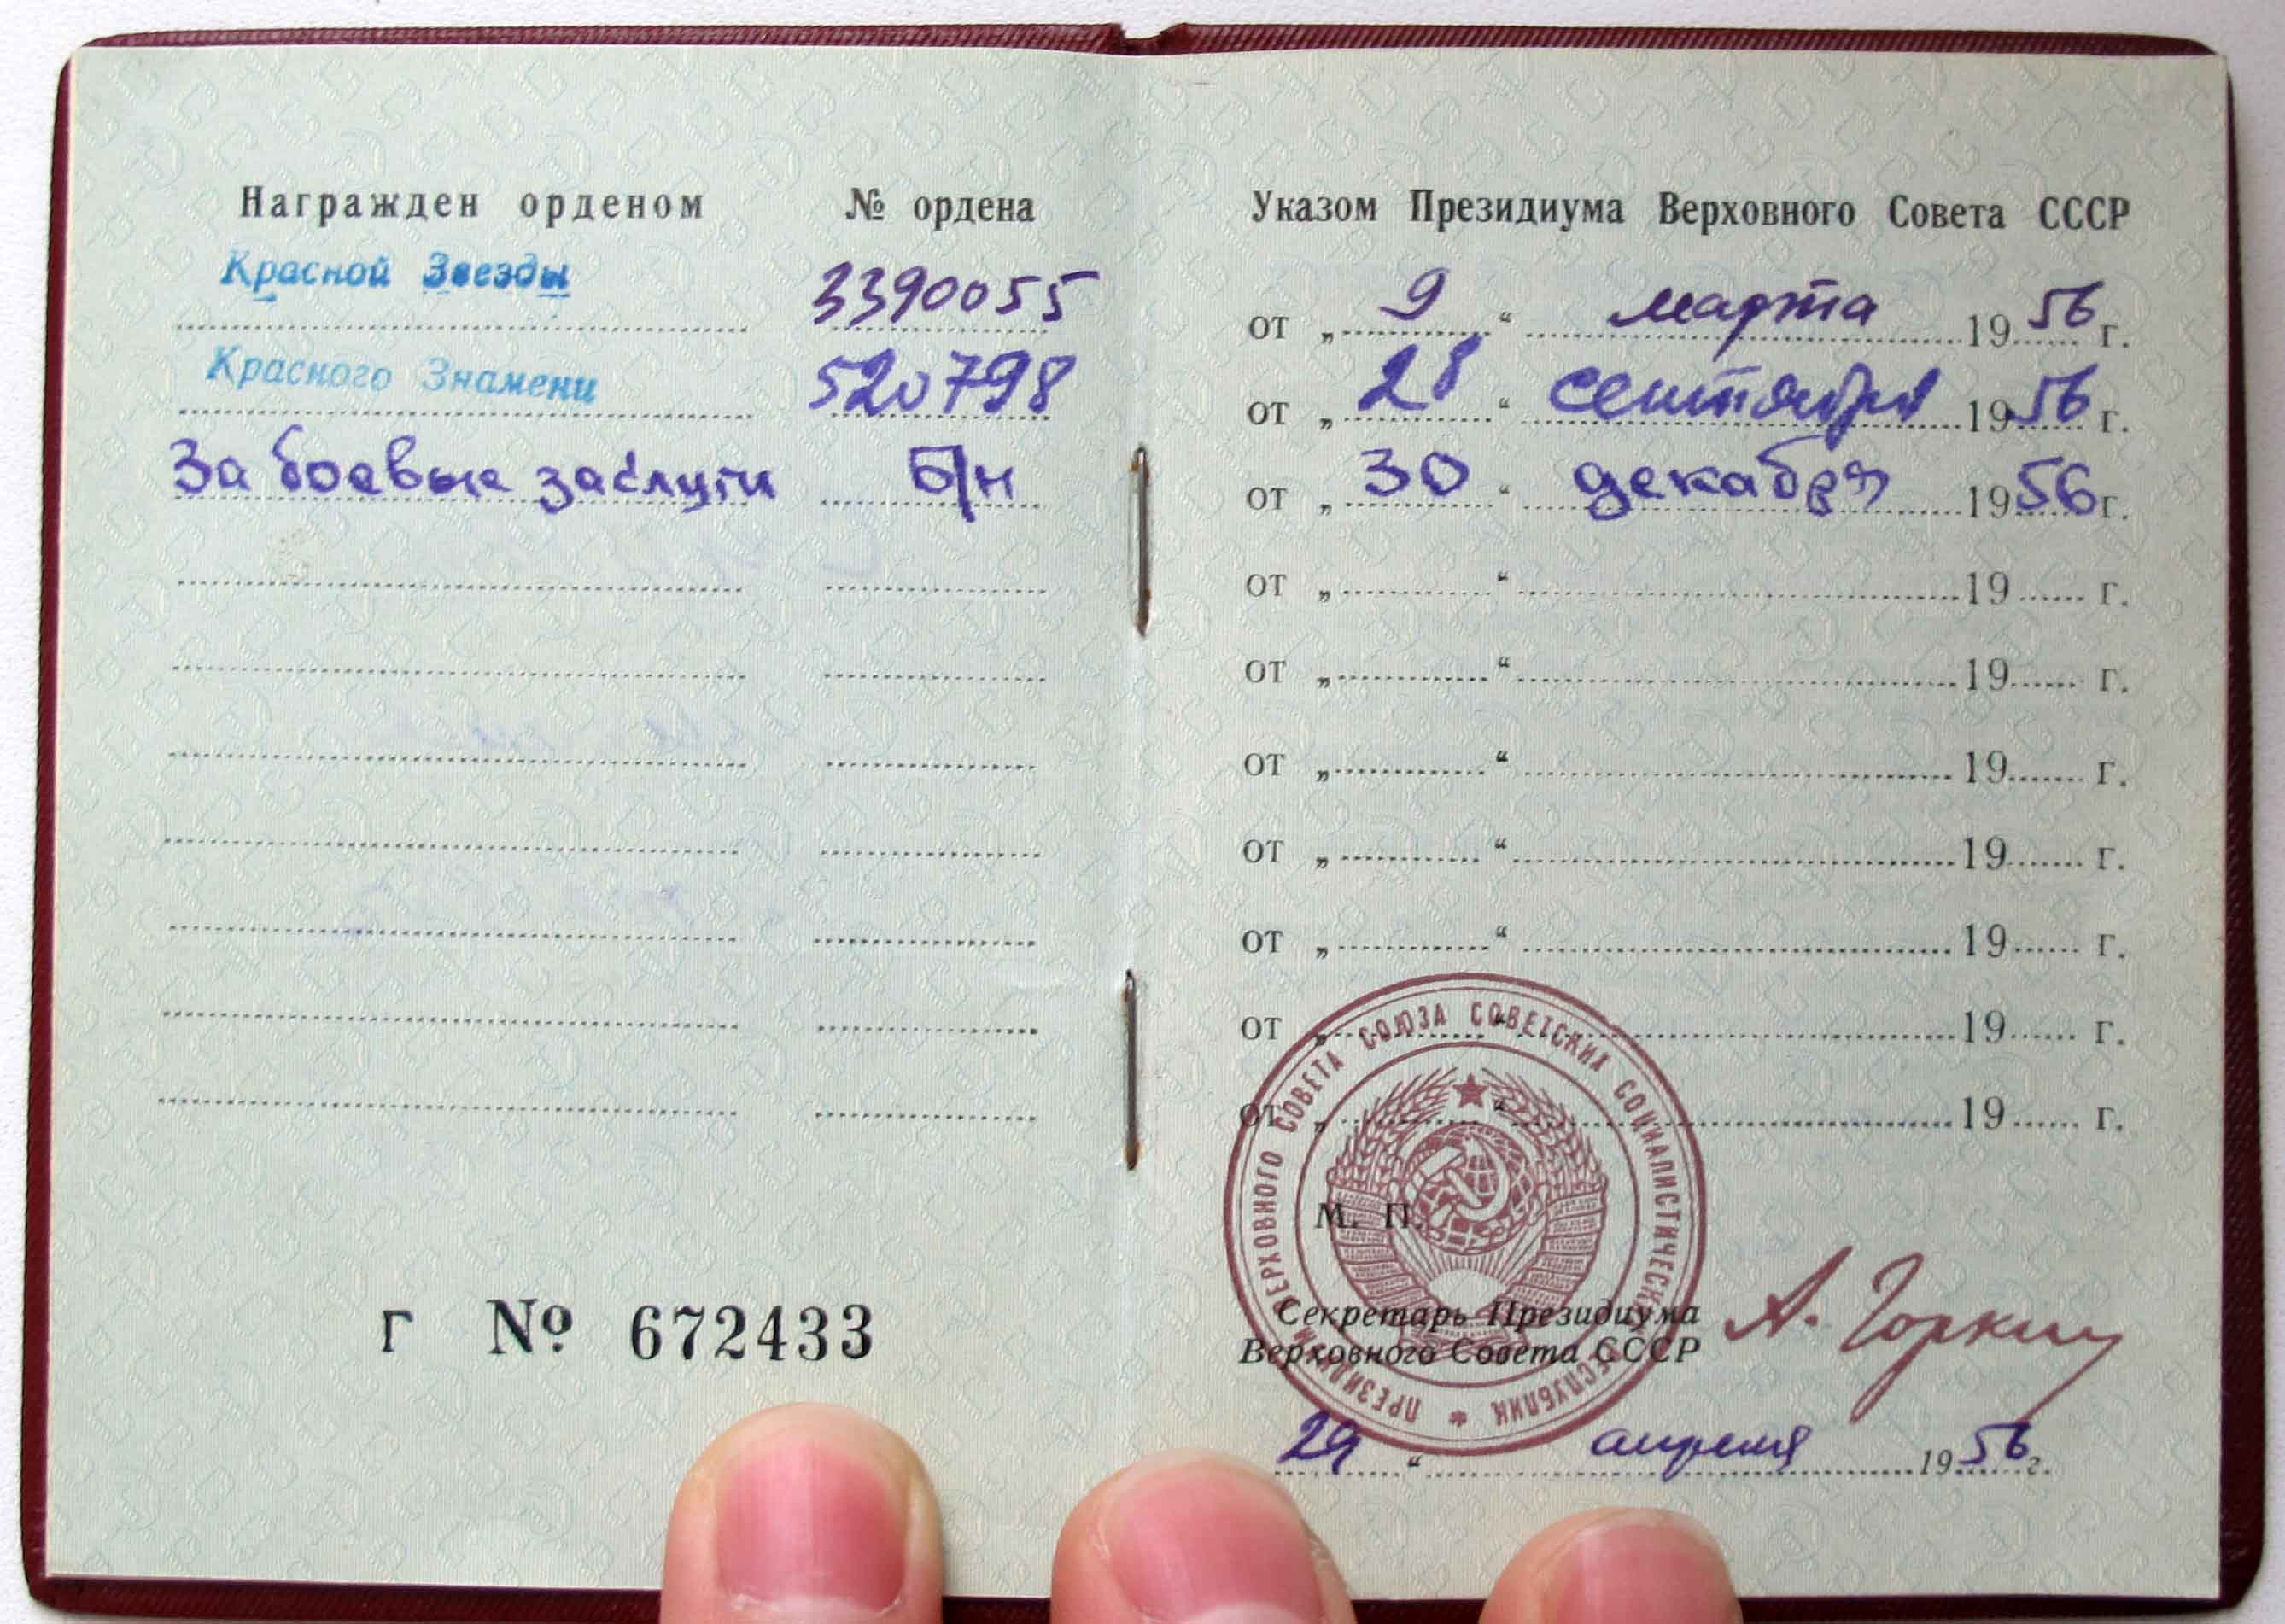 Награжден орденом № ордена Указом Президиума Верховного Совета СССР
Красной Звезды 3390055 от „ 9 “ марта 1956 г.
Красного Знамени 520798 от „ 28 “ сентября 1956 г.
За боевые заслуги Б/н от „ 30 “ декабря 1956 г.
от „ “ 19 г.
от „ “ 19 г.
от „ “ 19 г.
от „ “ 19 г.
от „ “ 19 г.
от „ “ 19 г.
от „ “ 19 г.
ПРЕЗИДИУМ ВЕРХОВНОГО СОВЕТА СОЮЗА СОВЕТСКИХ СОЦИАЛИСТИЧЕСКИХ РЕСПУБЛИК *
М. П.
г № 672433
Секретарь Президиума
Верховного Совета СССР А. Горкин
29 “ апреля 1956 г.